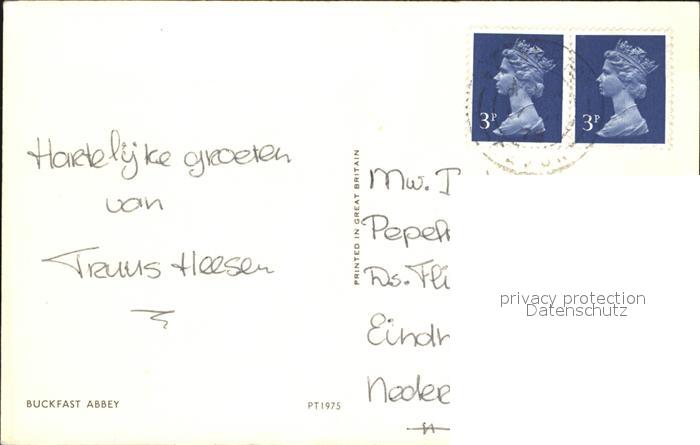 3P 3P
Hartelijke groeten
van
Truus Heesen
PRINTED IN GREAT BRITAIN
Mw.
Ds.
privacy protection
Datenschutz
BUCKFAST ABBEY
PT1975